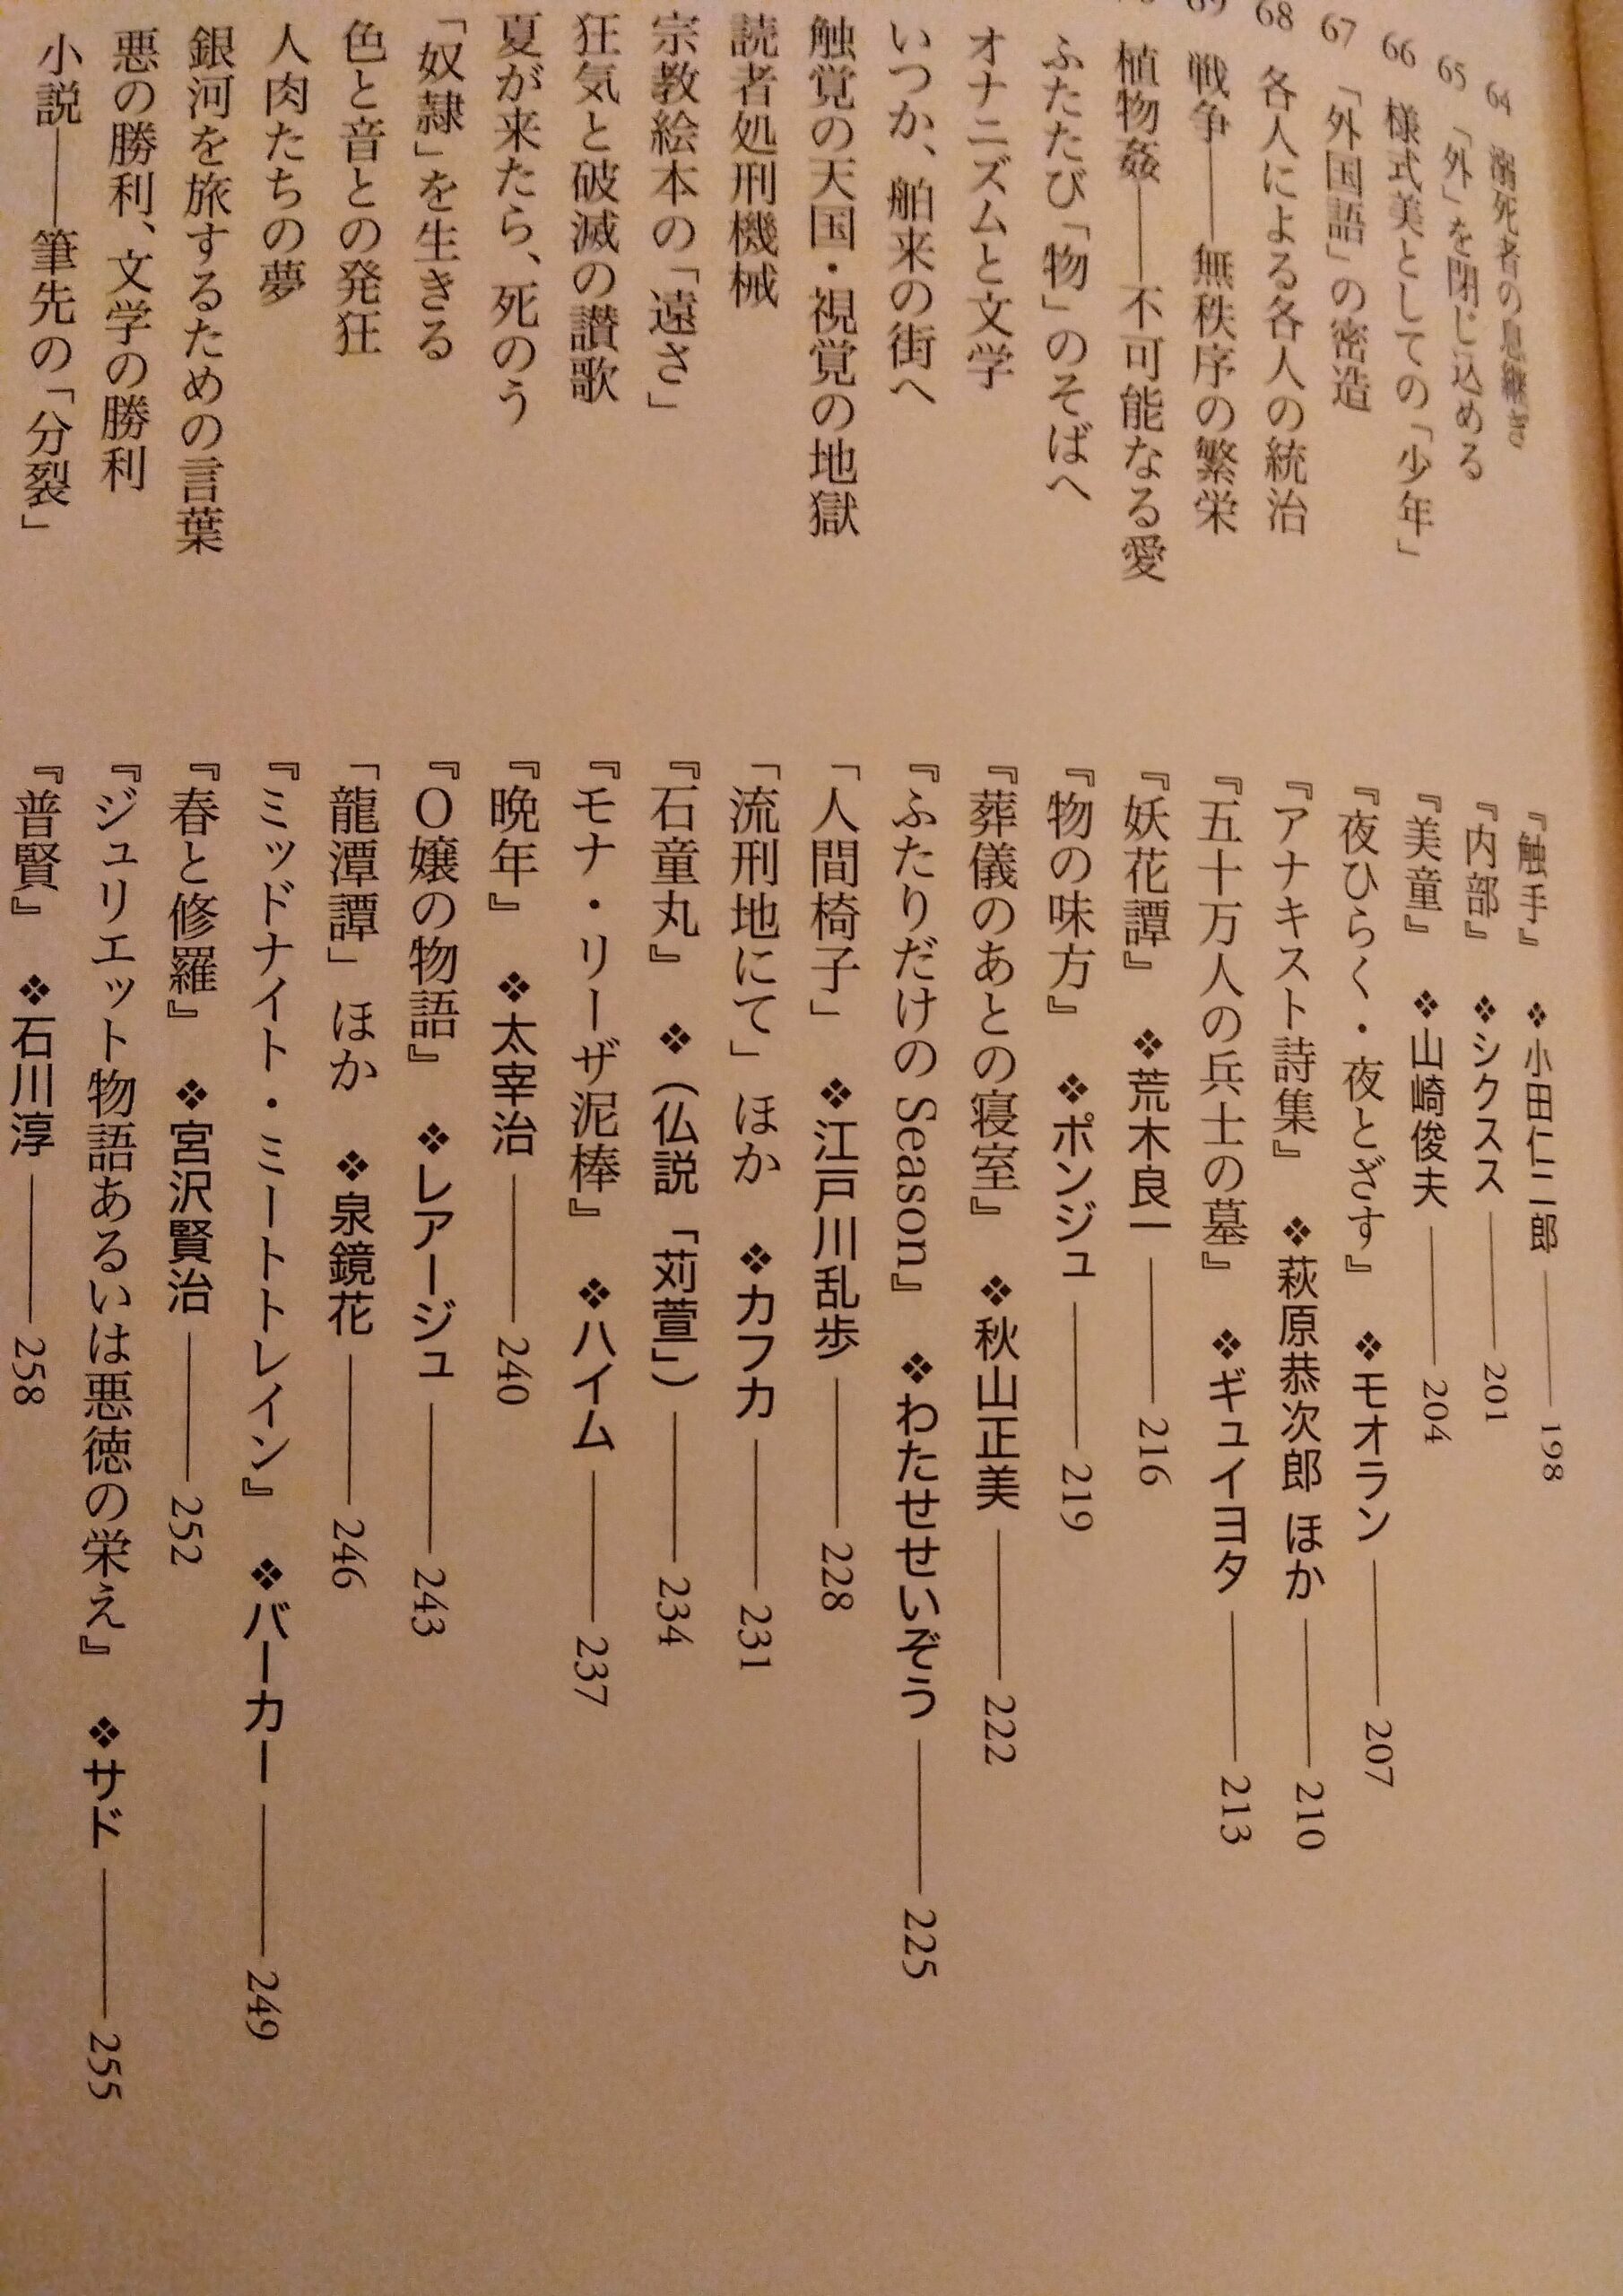 64 溺死者の息継ぎ 『触手』 ❖小田仁二郎 —— 198
65 「外」を閉じ込める 『内部』 ❖シクスス —— 201
66 様式美としての「少年」 『美童』 ❖山崎俊夫 —— 204
67 「外国語」の密造 『夜ひらく・夜とざす』 ❖モオラン —— 207
68 各人による各人の統治 『アナキスト詩集』 ❖萩原恭次郎 ほか —— 210
69 戦争——無秩序の繁栄 『五十万人の兵士の墓』 ❖ギュイヨタ —— 213
植物姦——不可能なる愛 『妖花譚』 ❖荒木良一 —— 216
ふたたび「物」のそばへ 『物の味方』 ❖ポンジュ —— 219
オナニズムと文学 『葬儀のあとの寝室』 ❖秋山正美 —— 222
いつか、舶来の街へ 『ふたりだけの Season』 ❖わたせせいぞう —— 225
触覚の天国・視覚の地獄 「人間椅子」 ❖江戸川乱歩 —— 228
読者処刑機械 「流刑地にて」ほか ❖カフカ —— 231
宗教絵本の「遠さ」 『石童丸』 ❖（仏説「苅萱」） —— 234
狂気と破滅の讃歌 『モナ・リーザ泥棒』 ❖ハイム —— 237
夏が来たら、死のう 『晩年』 ❖太宰治 —— 240
「奴隷」を生きる 『O嬢の物語』 ❖レアージュ —— 243
色と音との発狂 「龍潭譚」ほか ❖泉鏡花 —— 246
人肉たちの夢 『ミッドナイト・ミートトレイン』 ❖バーカー —— 249
銀河を旅するための言葉 『春と修羅』 ❖宮沢賢治 —— 252
悪の勝利、文学の勝利 『ジュリエット物語あるいは悪徳の栄え』 ❖サド —— 255
小説——筆先の「分裂」 『普賢』 ❖石川淳 —— 258